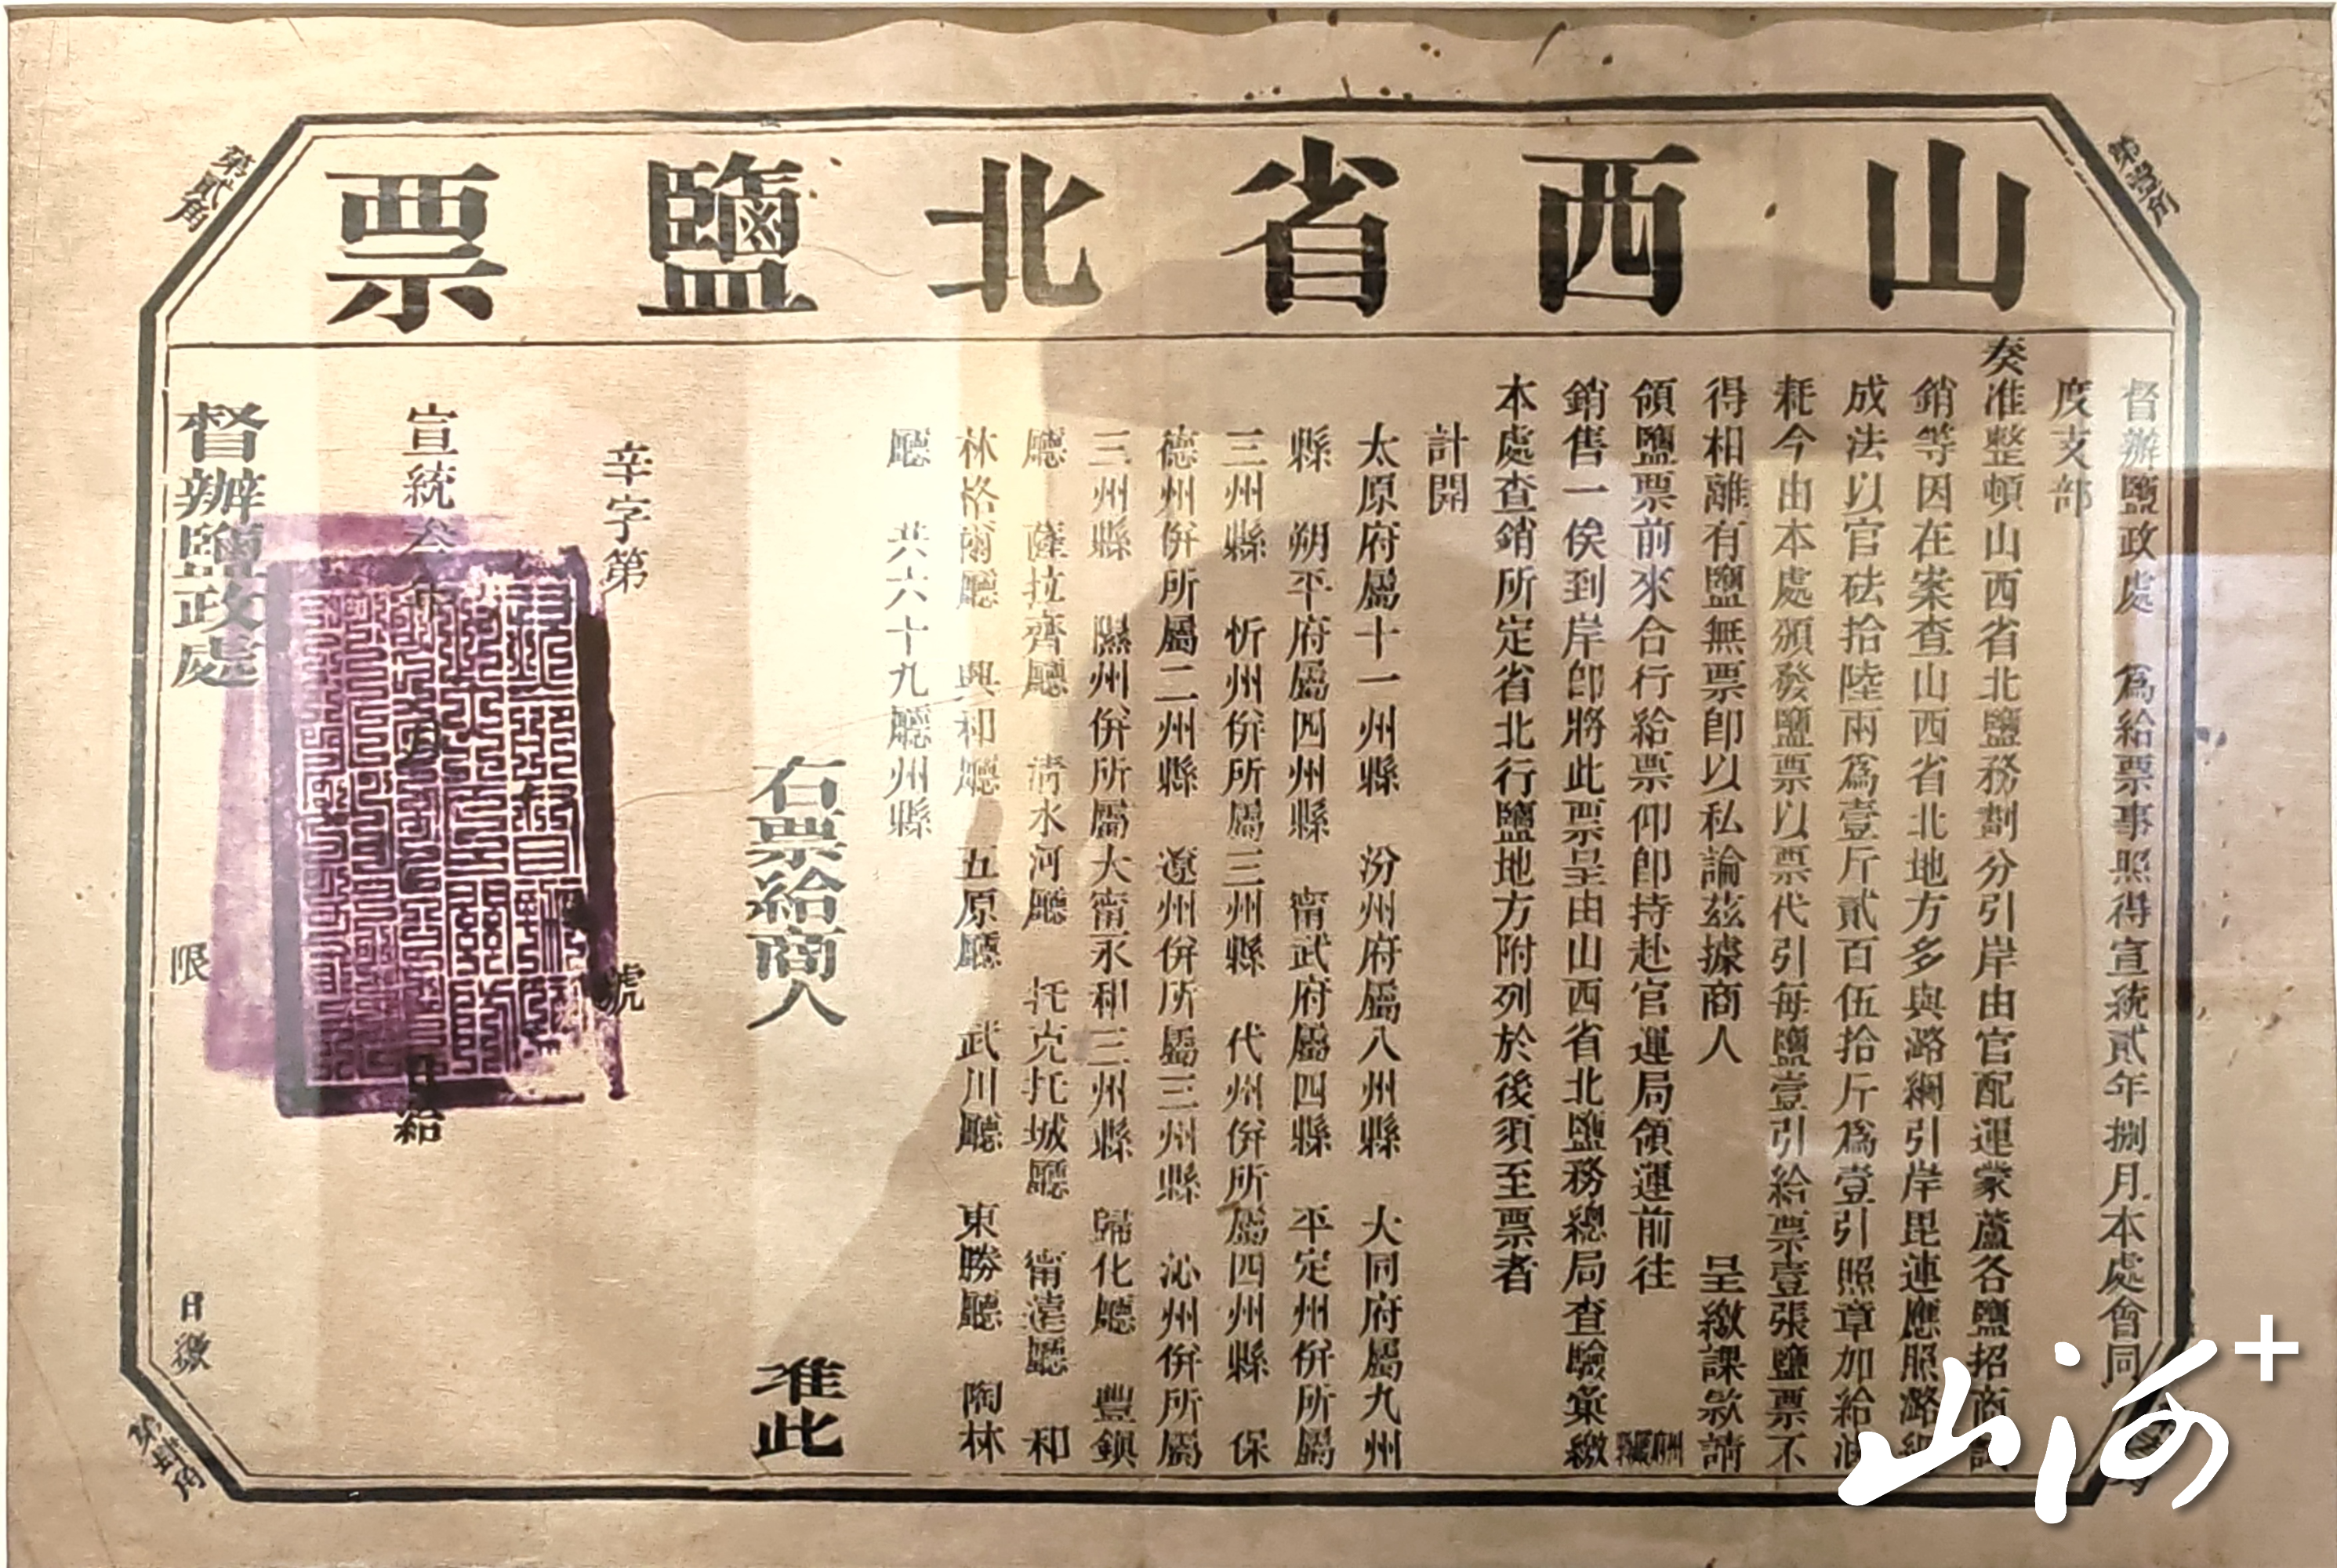 山西省北鹽票
第壹角
第貳角
督辦鹽政處 爲給票事照得宣統貳年捌月本處會同
度支部
奏准整頓山西省北鹽務劃分引岸由官配運蒙蘆各鹽招商試
銷等因在案查山西省北地方多與潞綱引岸毘連應照潞綱
成法以官砝拾陸兩爲壹斤貳百伍拾斤爲壹引照章加給滷
耗今由本處頒發鹽票以票代引每鹽壹引給票壹張鹽票不
得相離有鹽無票卽以私論茲據商人 呈繳課款請
領鹽票前來合行給票仰卽持赴官運局領運前往 州府縣廳
銷售一俟到岸卽將此票呈由山西省北鹽務總局查驗彙繳
本處查銷所定省北行鹽地方附列於後須至票者
計開
太原府屬十一州縣 汾州府屬八州縣 大同府屬九州
縣 朔平府屬四州縣 甯武府屬四縣 平定州併所屬
三州縣 忻州併所屬三州縣 代州併所屬四州縣 保
德州併所屬二州縣 遼州併所屬三州縣 沁州併所屬
三州縣 隰州併所屬大甯永和三州縣 歸化廳 豐鎮
廳 薩拉齊廳 清水河廳 托克托城廳 甯遠廳 和
林格爾廳 興和廳 五原廳 武川廳 東勝廳 陶林
廳 共六十九廳州縣
右票給商人 准此
辛字第 號
宣統叁年 月 日給
督辦鹽政處 限 日繳
第肆角
山河+